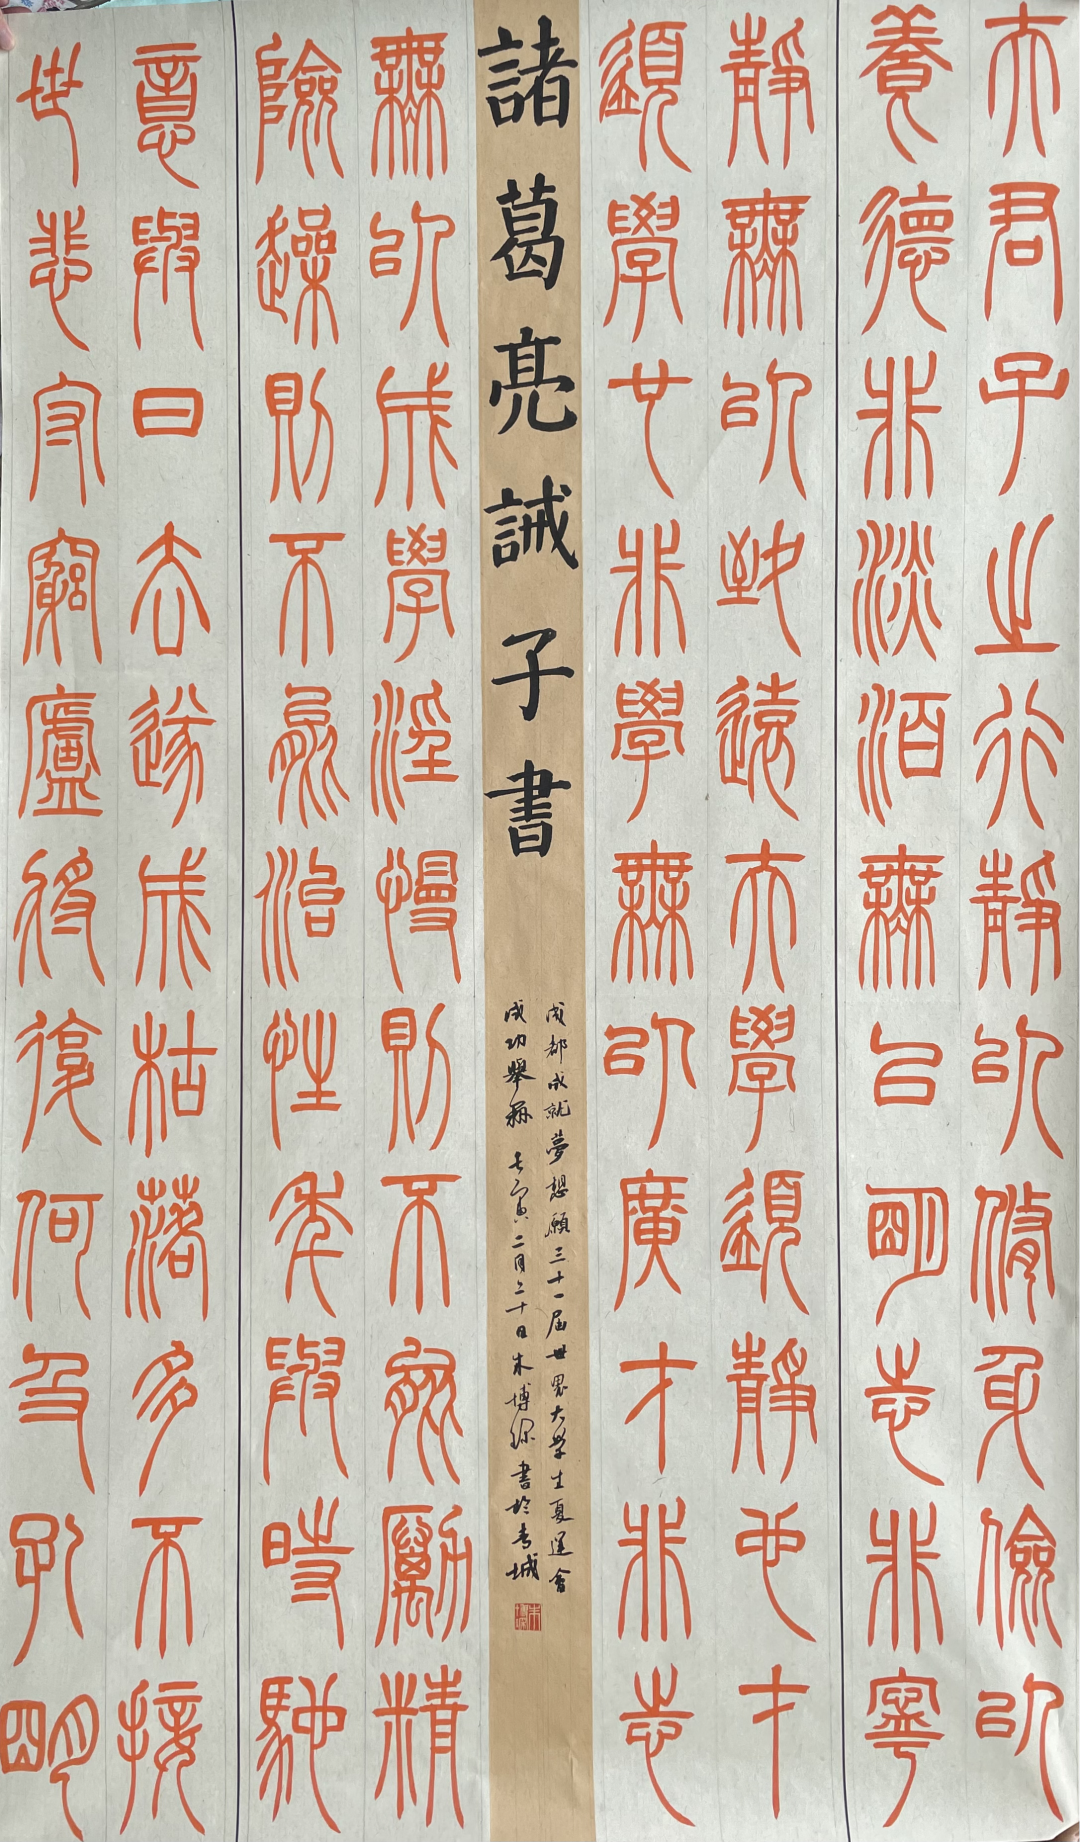 夫君子之行靜以脩身儉以
養德非淡泊無以明志非寧
靜無以致遠夫學須靜也才
須學也非學無以廣才非志
諸葛亮誡子書
成都成就夢想願三十一屆世界大學生夏運會
成功舉辦 壬寅二月二十日 書於春城
無以成學淫慢則不能勵精
險躁則不能治性年與時馳
意與日去遂成枯落多不接
世悲守窮廬將復何及孔明